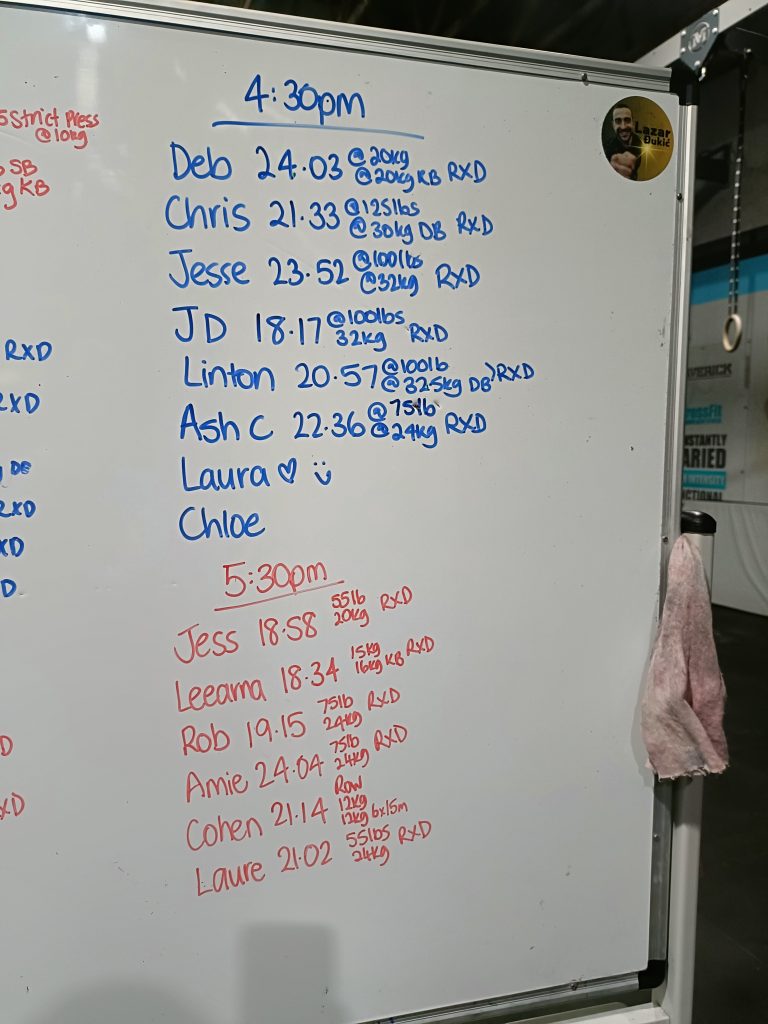 5 Strict Press
@10kg
SB
KB
RXD
RXD
DB
RXD
4:30pm
Deb 24.03 @20kg
@20kg KB RXD
Chris 21.33 @125lbs
@30kg DB RXD
Jesse 23.52 @100lbs
@32kg RXD
JD 18.17 @100lbs
32kg RXD
Linton 20.57 @100lb
@32.5kg DB RXD
Ash C 22.36 @75lb
@24kg RXD
Laura ♡ :)
Chloe
5:30pm
Jess 18.58 55lb
20kg RXD
Leeama 18.34 15kg
16kg KB RXD
Rob 19.15 75lb
24kg RXD
Amie 24.04 75lb
24kg RXD
Cohen 21.14 Row
12kg
12kg 6x15m
Laure 21.02 55lbs
24kg RXD
Lazar
Đukić
M